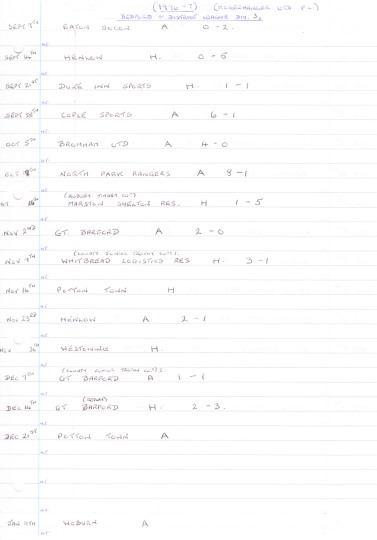 (1996-7) (MEPPERSHALL UTD F.C.)
BEDFORD & DISTRICT LEAGUE DIV. 3.
SEPT 7TH EATON SOCON A 0-2.
SEPT 14TH HENLOW H. 0-5
SEPT 21ST DUKE INN SPORTS H 1-1
SEPT 28TH COPLE SPORTS A 6-1
OCT 5TH BROMHAM UTD A 4-0
OCT TH NORTH PARK RANGERS A 8-1
MARSTON SHELTON RES. H 1-5
NOV 2ND GT. BARFORD A 2-0
(COUNTY JUNIOR TROPHY CUP).
NOV 9TH WHITBREAD LOGISTICS RES H. 3-1
NOV 16TH POTTON TOWN H
NOV 23RD HENLOW A 2-1
NOV 30TH WESTONING H.
(COUNTY JUNIOR TROPHY CUP).
DEC 7TH GT BARFORD A 1-1
(REPLAY)
DEC 14TH GT BARFORD H. 2-3.
DEC 21ST POTTON TOWN A
JAN TH WOBURN A